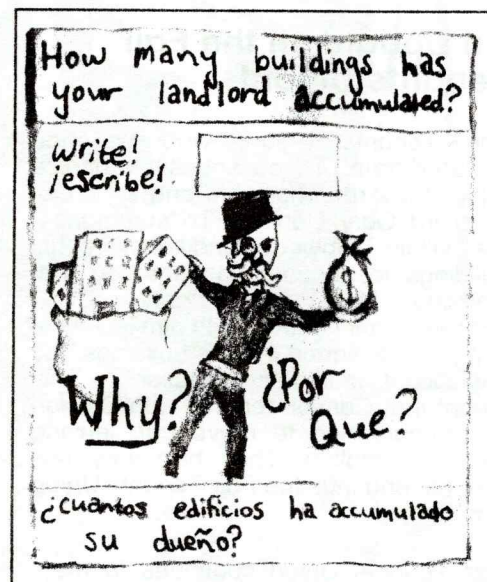 How many buildings has
your landlord accumulated?
Write!
¡escribe!
$
Why?
¿Por
Que?
¿cuantos edificios ha accumulado
su dueño?